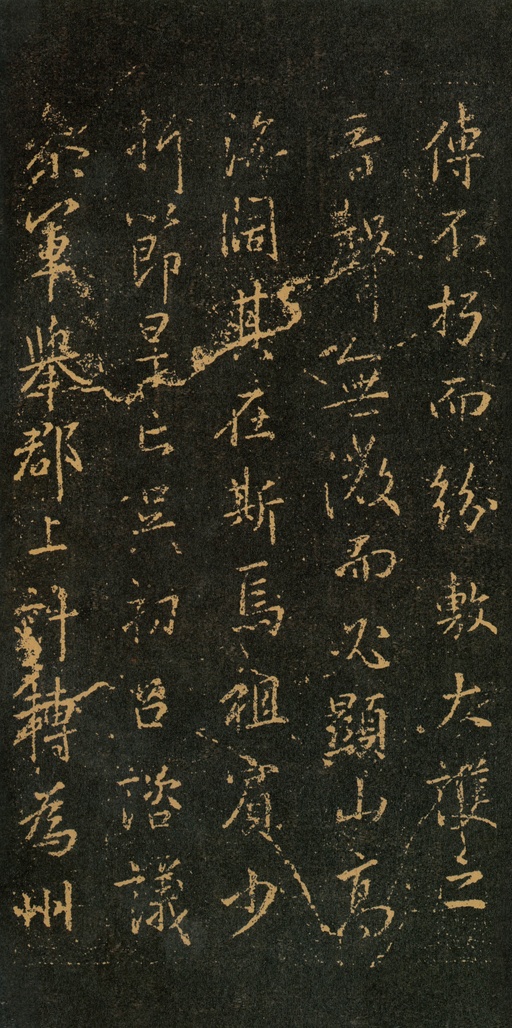 傳不朽而紛敷大護之
音聲無微而必顯山高
海闊其在斯焉祖賓少
折節早亡吳初召諮議
參軍舉郡上計轉為州